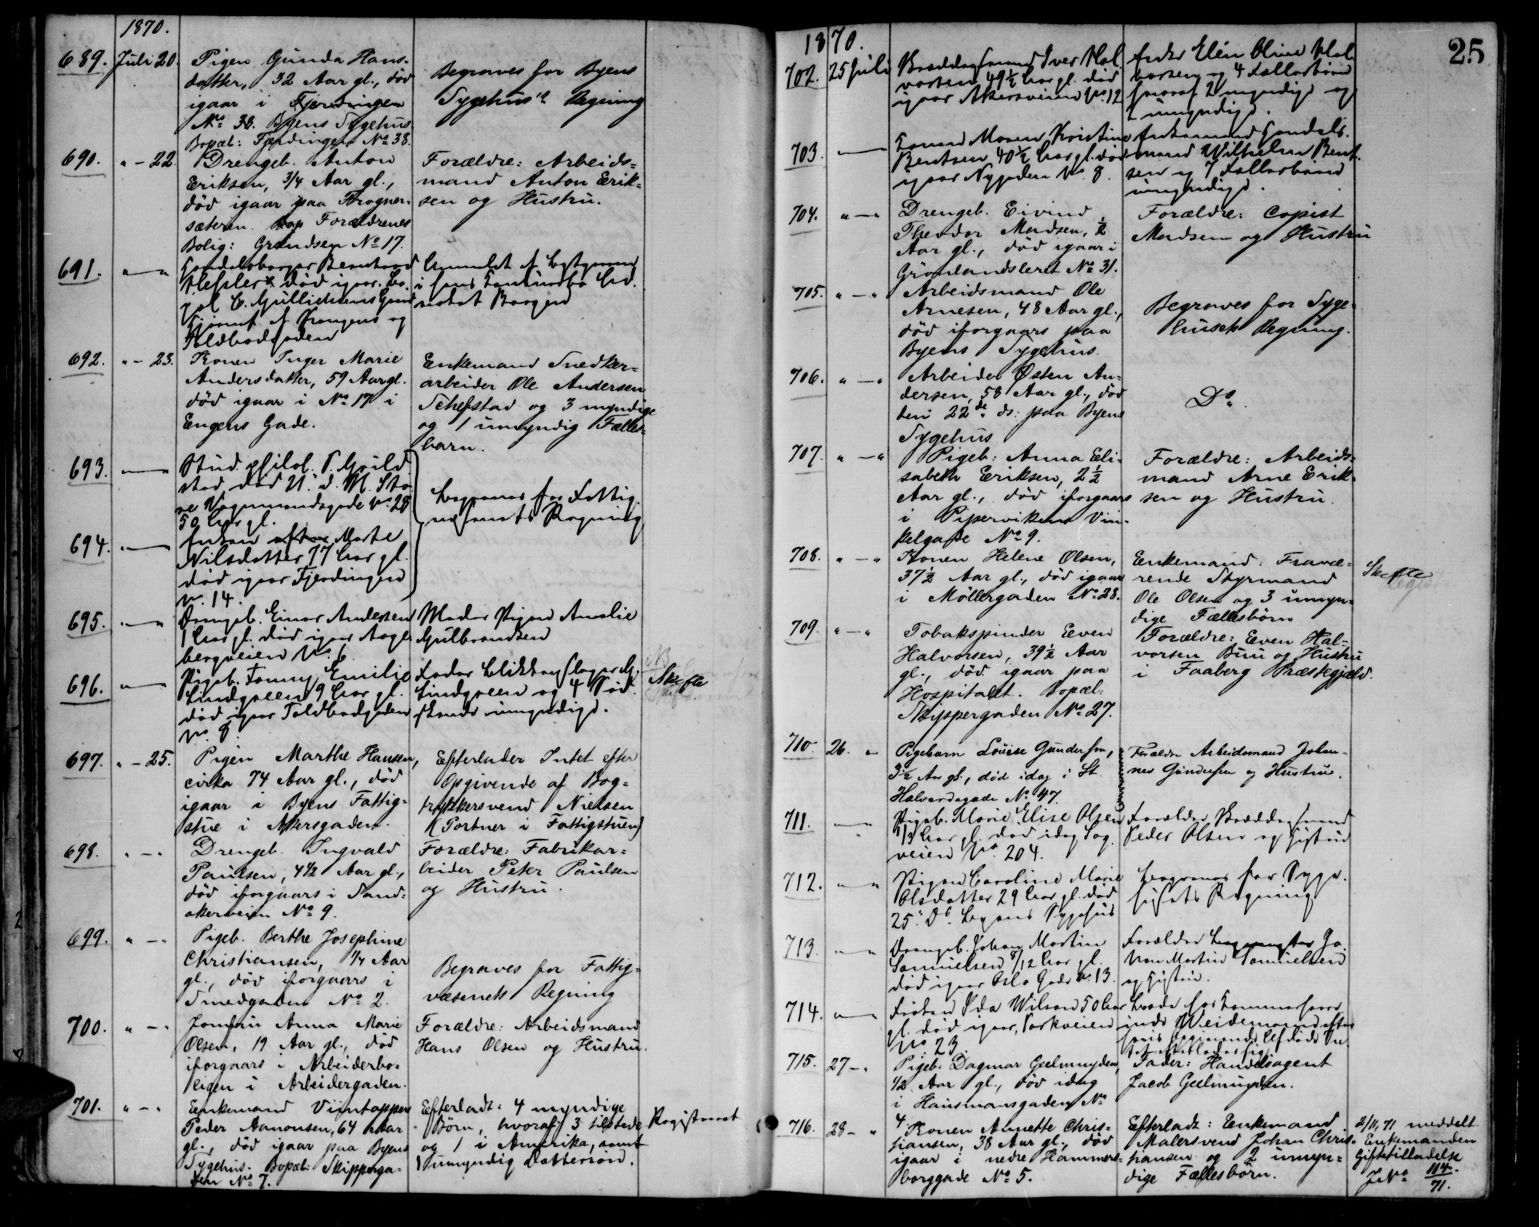 1870.
689. Juli 20. Pigen Gunda Hans-
datter, 32 Aar gl., død
igaar i Fjerdingen
No 38. Byens Sygehus
Bopæl: Fjerdingen No 38.
Begraves for Byens
Sygehus's Regning
690. " - 22 Drengeb. Anton
Eriksen, 3/4 Aar gl.,
død igaar paa Frogner-
sæteren. Bop Forældrenes
Bolig: Grændsen No 17.
Forældre: Arbeids-
mand Anton Erik-
sen og Hustru.
691. død igaar
C. Gulliksens
Kongens og
Toldbodgaden
692. " - 23. Konen Inger Marie
Andersdatter, 59 Aar gl.
død igaar i No 17 i
Engens Gade.
Enkemand Snedker-
arbeider Ole Andersen
og 3 myndige
og 1 umyndig Fælles-
barn.
693. Stud. philol.
stad, død 21. d. M. Sto-
re Vognmandsgade No 28
59 Aar gl.
Begraves for Fattig-
væsenets Regning
694. Enken Marte
Nilsdatter 77 Aar gl.
død igaar Fjerdingen
No. 14.
695. Drengeb. Einar Andersen
1 Aar gl. død igaar
bergveien No. 6.
Moder Pigen Amalie
Gulbrandsen
696. Pigeb. Fanny Emilie
Lindgreen 9 Aar gl.
død igaar Toldbodgaden
No. 8.
Fader Blikkenslager
Lindgreen og 4 Sød-
skende umyndige.
Skifte
697. " - 25. Pigen Marthe Hansen,
cirka 74 Aar gl., død
igaar i Byens Fattig-
stue i Akersgaden.
Efterlader Intet efter
Opgivende af Bog-
trykkersvend Nielsen
(Portner i Fattigstuen)
698. " - " Drengeb. Ingvald
Paulsen, 4 1/2 Aar gl.,
død iforgaars i Sand-
akerveien No 9.
Forældre: Fabrikar-
beider Peter Paulsen
og Hustru.
699. " - " Pigeb. Berthe Josephine
Christiansen, 1/4 Aar
gl., død iforgaars i
Smedgaden No 2.
Begraves for Fattig-
væsenets Regning
700. " - " Jomfru Anna Marie
Olsen, 19 Aar gl., død
iforgaars i Arbeiderbo-
ligen i Arbeidergaden.
Forældre: Arbeidsmand
Hans Olsen og Hustru.
701. " - " Enkemand Vintapper
Peder Aanonsen, 64 Aar
gl., død igaar paa Byens
Sygehus. Bopæl: Skipperga-
den No 7.
Efterladt: 4 myndige
Børn, hvoraf 3 tilstede
og 1 i Amerika, samt
1 umyndig Dattersøn.
Registreret
25
1870.
702. 25 Juli Brolæggermand Iver Hal-
vorsen 49 1/2 Aar gl. død
igaar Akersveien No. 12
Enke Elen Oline Hal-
vorsen og 4 Fællesbørn
hvoraf 2 myndige og
2 umyndige.
703. Konen Maren Kristine
Bentsen, 40 1/2 Aar gl. død
igaar Nygaden No. 8.
Enkemand Handels-
mand Wilhelm Bent-
sen og 7 Fællesbørn
umyndige.
704. " - " Drengeb. Eivind
Theodor Madsen, 1/2
Aar gl., død igaar i
Grønlandsleret No 31.
Forældre: Copist
Madsen og Hustru
705. " - " Arbeidsmand Ole
Arnesen, 48 Aar gl.,
død iforgaars paa
Byens Sygehus.
Begraves for Syge-
husets Regning.
706. " - " Arbeider Østen An-
dersen, 58 Aar gl., død
den 22de ds. paa Byens
Sygehus
Do.
707. " - " Pigeb: Anna Eli-
sabeth Eriksen, 2 1/2
Aar gl., død iforgaars
i Pipervikens Vin-
kelgade No 9.
Forældre: Arbeids-
mand Arne Erik-
sen og Hustru.
708. " - " Konen Helene Olsen,
37 1/2 Aar gl., død igaar
i Møllergaden No 28.
Enkemand: Fravæ-
rende Styrmand
Ole Olsen og 3 umyn-
dige Fællesbørn
Skifte
709. " - " Tobakspinder Even
Halvorsen, 39 1/2 Aar
gl., død igaar paa
Hospitalet. Bopæl:
Skippergaden No 27.
Forældre: Even Hal-
vorsen Buu og Hustru
i Faaberg Præstegjæld.
710. 26. " Pigebarn Louise Gundersen,
3 1/2 Aar gl., død idag i St
Halvardsgade No 47.
Forældre Arbeidsmand Johan-
nes Gundersen og Hustru.
711. Pigeb. Marie Elise Olsen
1/2 Aar gl. død idag
veien No. 204.
Forældre Brolæggermand
Peder Olsen og Hustru
712. Pigen Caroline Marie
Olsdatter 29 Aar gl. død
25' Ds. Byens Sygehus
Begraves for Syge-
husets Regning
713. Drengeb. Johan Martin
Samuelsen 5/12 Aar gl.
død igaar Oslo Gade No. 13.
Forældre Jo-
han Martin Samuelsen
og Hustru.
714. Frøken Ida Wilson 50 Aar
gl. død igaar, Parkveien
No 23
715. 27 - " Pigeb. Dagmar Geelmuyden
1/2 Aar gl., død idag
i Hausmansgaden No
4
Fader: Handelsagent
Jacob Geelmuyden.
716. 28 - " Konen Annette Chris-
tiansen, 38 Aar gl., død
igaar i nedre Hammers-
borggade No 5.
Efterladt: Enkemand
Malersvend Johan Chris-
tiansen og 2 umyn-
dige Fællesbørn.
2/11, 71 meddelt
Enkemanden
Giftetilladelse
J No 114/71.